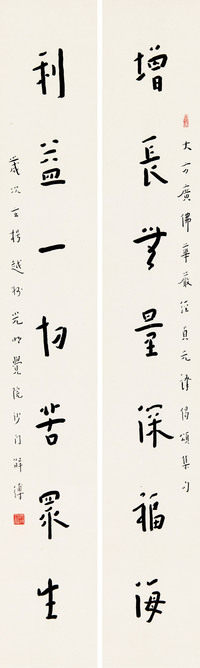 大方廣佛華嚴經貞元譯偈頌集句
增長無量深福海
利益一切苦眾生
歲次玄枵越州光明覺院沙門